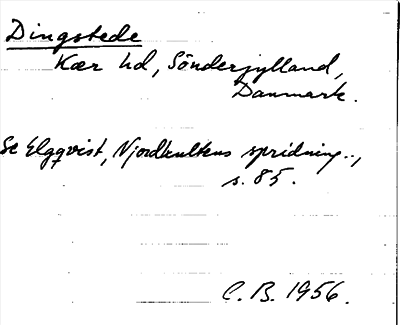 Dingstede
Kær hd, Sönderjylland,
Danmark.
Se Elgqvist, Njordkultens spridning..,
s. 85.
C. B. 1956.